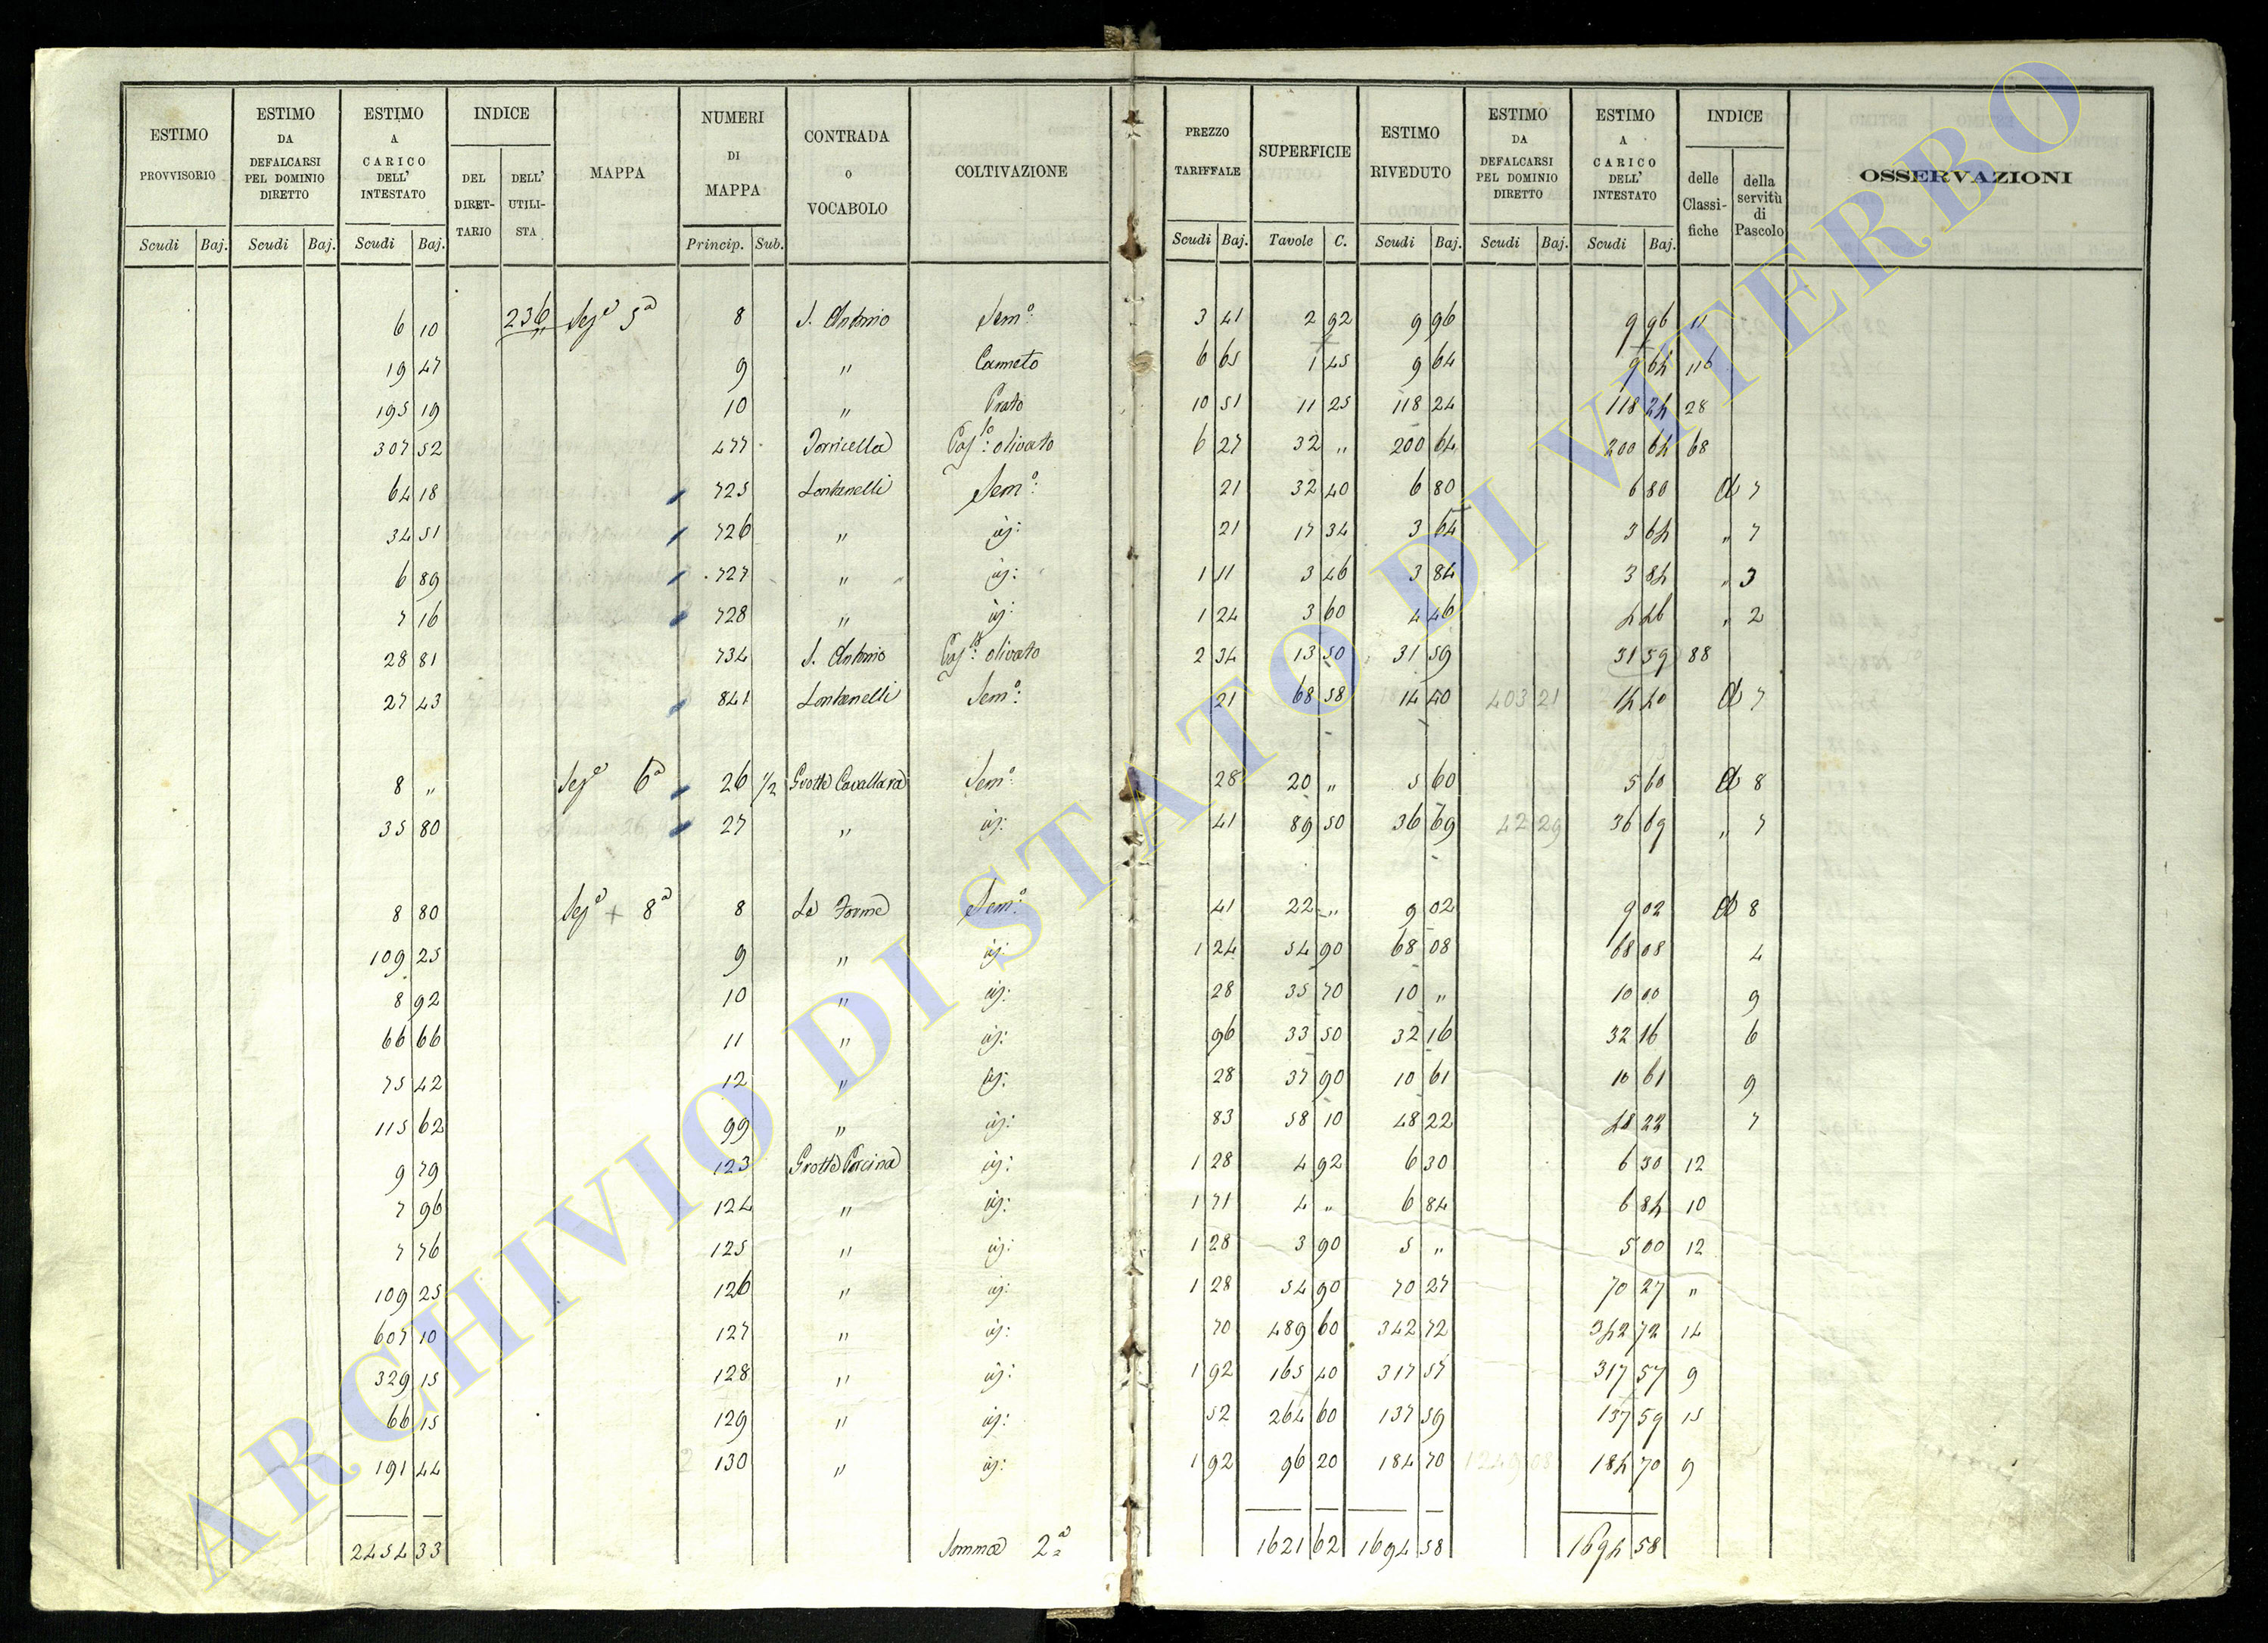 ESTIMO PROVVISORIO | ESTIMO DA DEFALCARSI PEL DOMINIO DIRETTO | ESTIMO A CARICO DELL' INTESTATO | INDICE | MAPPA | NUMERI DI MAPPA | CONTRADA O VOCABOLO | COLTIVAZIONE | PREZZO TARIFFALE | SUPERFICIE | ESTIMO RIVEDUTO | ESTIMO DA DEFALCARSI PEL DOMINIO DIRETTO | ESTIMO A CARICO DELL' INTESTATO | INDICE | OSSERVAZIONI
DEL DIRET-TARIO | DELL' UTILI-STA | delle Classi-fiche | della servitù di Pascolo
Scudi | Baj. | Scudi | Baj. | Scudi | Baj. | Princip. | Sub. | Scudi | Baj. | Tavole | C. | Scudi | Baj. | Scudi | Baj. | Scudi | Baj.
6 10 | 236 | Sez.e 5a | 8 | S. Antonio | Sem.o: | 3 41 | 2 92 | 9 96 | 9 96 | 11
19 47 | 9 | " | Canneto | 6 65 | 1 45 | 9 64 | 9 64 | 116
195 19 | 10 | " | Prato | 10 51 | 11 25 | 118 24 | 118 24 | 28
307 52 | 477 | Torricella | Pas.lo: olivato | 6 27 | 32 " | 200 64 | 200 64 | 68
64 18 | 725 | Lontanelli | Sem.o: | 21 | 32 40 | 6 80 | 6 80 | 7
34 51 | 726 | " | 21 | 17 34 | 3 64 | 3 64 | " 7
6 89 | 727 | " | 1 11 | 3 46 | 3 84 | 3 84 | " 3
7 16 | 728 | " | 1 24 | 3 60 | 4 46 | 4 46 | " 2
28 81 | 734 | S. Antonio | Pas.lo: olivato | 2 34 | 13 50 | 31 59 | 31 59 | 88
27 43 | 841 | Lontanelli | Sem.o: | 21 | 68 58 | 14 40 | 403 21 | 14 40 | 7
8 " | Sez.e 6a | 26 1/2 | Grotta Cavallara | Sem.o: | 28 | 20 " | 5 60 | 5 60 | 8
35 80 | 27 | " | 41 | 89 50 | 36 69 | 42 29 | 36 69 | " 7
8 80 | Sez.e + 8a | 8 | Le Forme | Sem.o: | 41 | 22 " | 9 02 | 9 02 | 8
109 25 | 9 | " | 1 24 | 54 90 | 68 08 | 68 08 | 4
8 92 | 10 | " | 28 | 35 70 | 10 " | 10 00 | 9
66 66 | 11 | " | 96 | 33 50 | 32 16 | 32 16 | 6
75 42 | 12 | " | 28 | 37 90 | 10 61 | 10 61 | 9
115 62 | 99 | " | 83 | 58 10 | 48 22 | 48 22 | 7
9 79 | 123 | Grotta Porcina | 1 28 | 4 92 | 6 30 | 6 30 | 12
7 96 | 124 | " | 1 71 | 4 " | 6 84 | 6 84 | 10
7 76 | 125 | " | 1 28 | 3 90 | 5 " | 5 00 | 12
109 25 | 126 | " | 1 28 | 54 90 | 70 27 | 70 27 | "
607 10 | 127 | " | 70 | 489 60 | 342 72 | 342 72 | 14
329 15 | 128 | " | 1 92 | 165 40 | 317 57 | 317 57 | 9
66 15 | 129 | " | 52 | 264 60 | 137 59 | 137 59 | 15
191 44 | 130 | " | 1 92 | 96 20 | 184 70 | 184 70 | 9
2454 33 | Somma 2a | 1621 62 | 1694 58 | 1694 58
ARCHIVIO DI STATO DI VITERBO